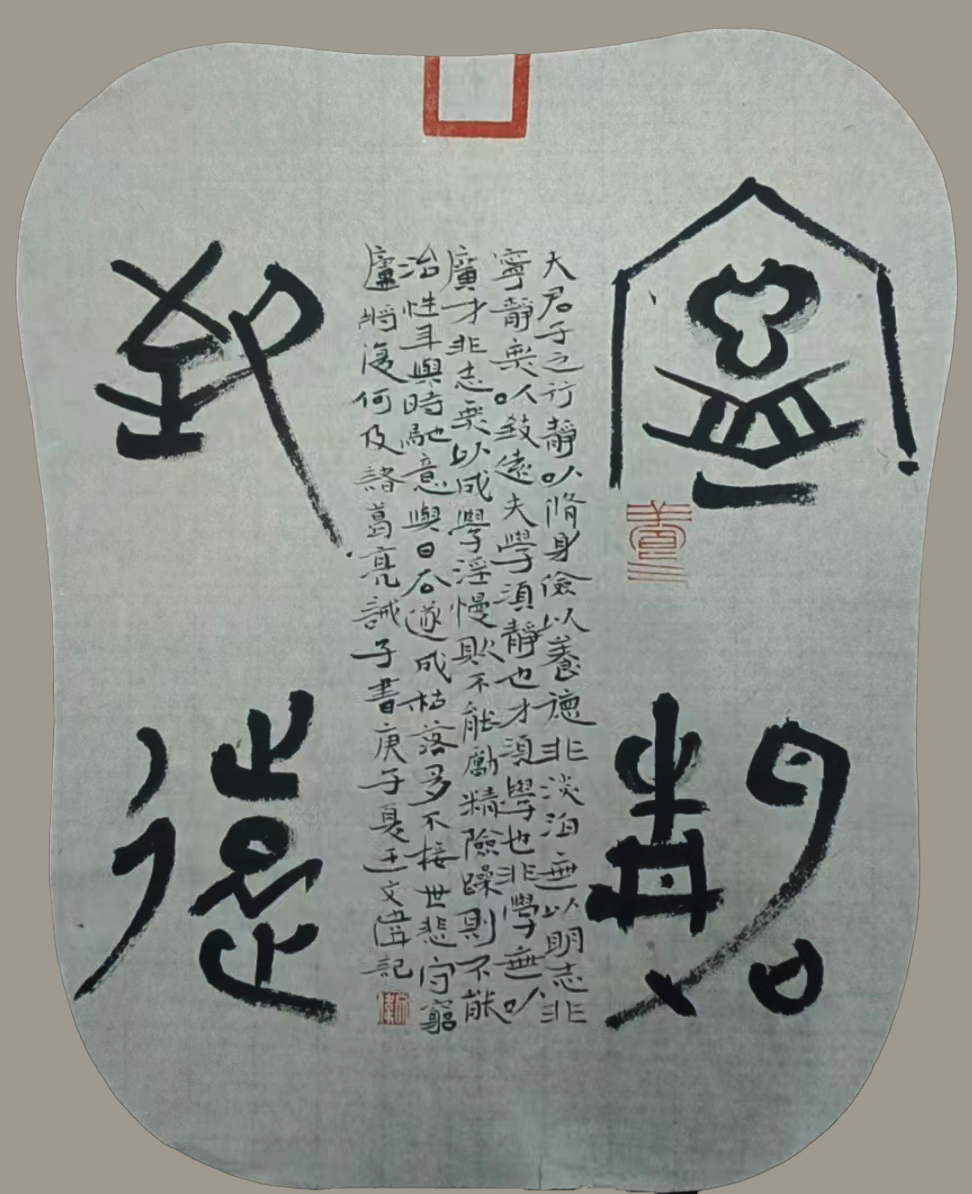 寧靜
致遠
夫君子之行靜以脩身儉以養德非淡泊無以明志非
寧靜無以致遠夫學須靜也才須學也非學無以
廣才非志無以成學淫慢則不能勵精險躁則不能
治性年與時馳意與日去遂成枯落多不接世悲守窮
廬將復何及諸葛亮誡子書庚子夏王文記